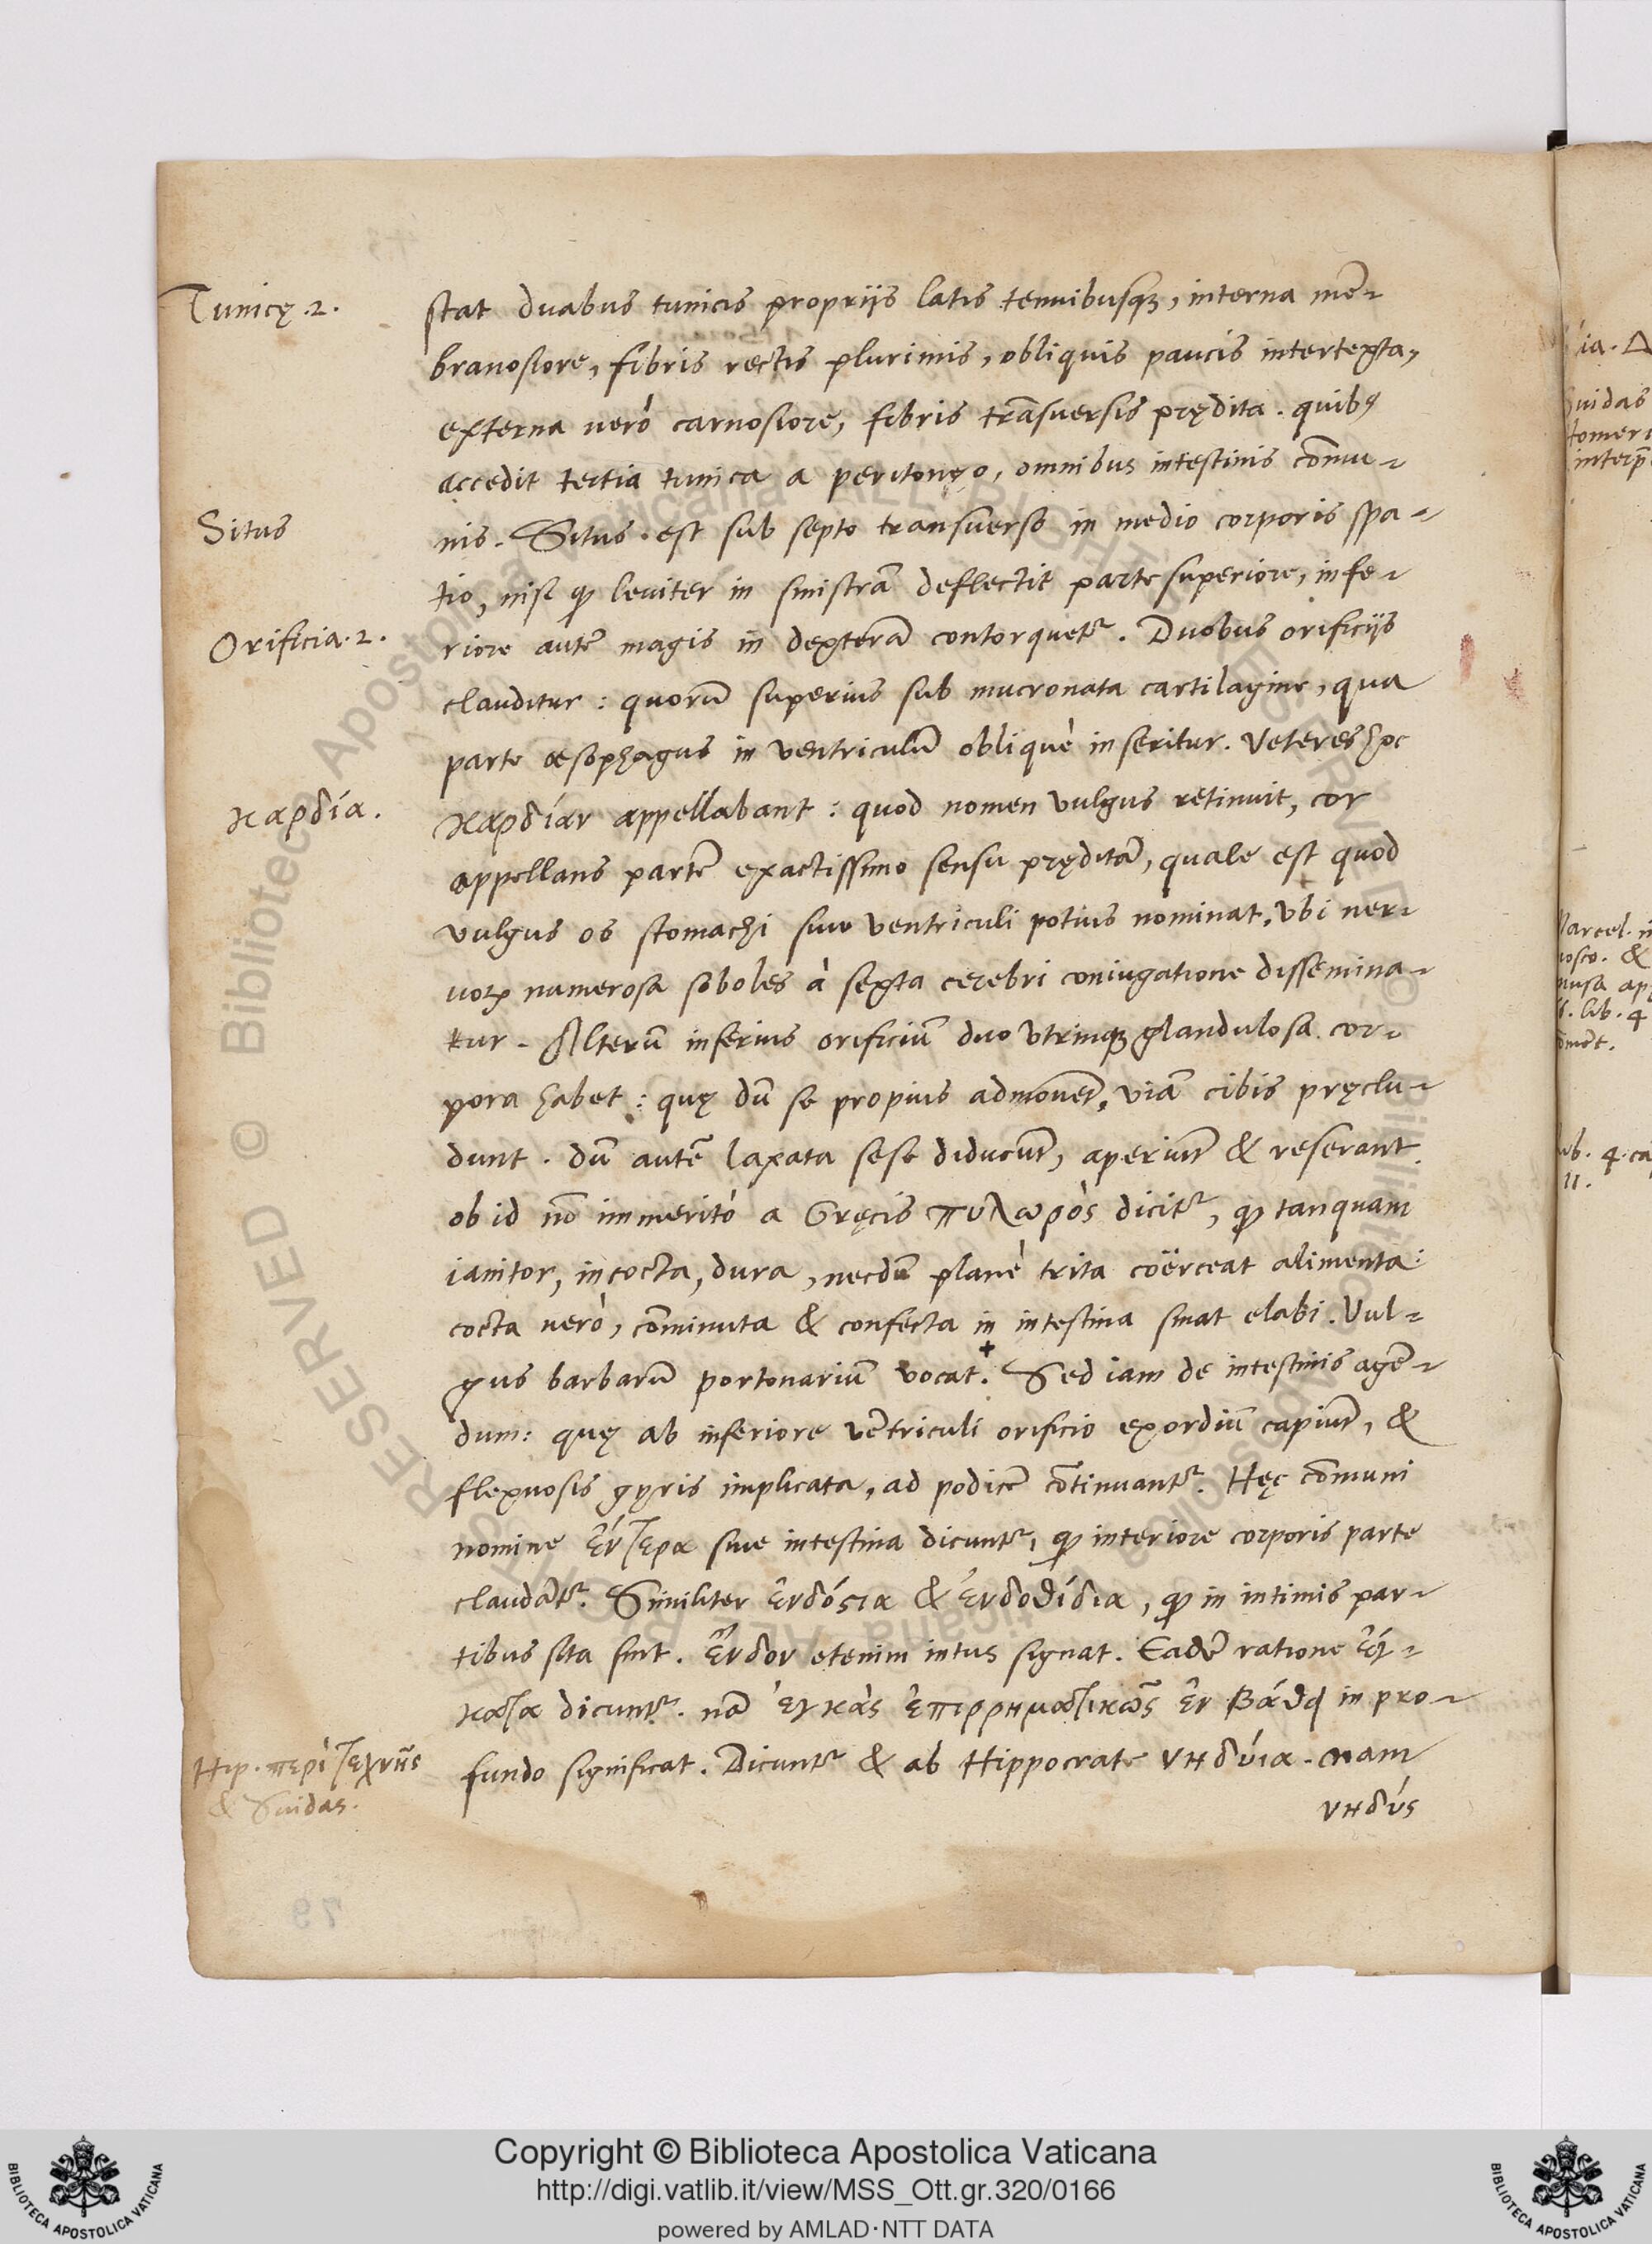 Tunicę .2.
stat duabus tunicis proprijs latis tenuibusqꝫ, interna mē-
branosiore, fibris rectis plurimis, obliquis paucis intertexta,
externa uerò carnosiore, fibris trāsuersis prędita. quibꝰ
accedit tertia tunica a peritonęo, omnibus intestinis cōmu-
Situs
nis. Situs est sub septo transuerso in medio corporis spa-
tio, nisi qꝫ leuiter in sinistrā deflectit parte superiore, infe-
Orificia .2.
riore autē magis in dexterā contorquetʳ. Duobus orificijs
clauditur: quorū superius sub mucronata cartilagine, qua
parte œsophagus in ventriculū obliquè inseritur. Veteres hoc
καρδία.
καρδίαν appellabant: quod nomen vulgus retinuit, cor
appellans partē exactissimo sensu pręditā, quale est quod
vulgus os stomachi siue ventriculi potius nominat, vbi ner-
uoꝝ numerosa soboles à sexta cerebri coniugatione dissemina-
tur. Alterū inferius orificiū duo vtrinqꝫ glandulosa cor-
pora habet: quę dū se propius admouēt, viā cibis pręclu-
dunt. dū autē laxata sese diducūt, aperiūt & reserant
ob id nō immeritò a Gręcis πυλωρὸς dicitʳ, qꝫ tanquam
ianitor, incocta, dura, necdū planè trita coërceat alimenta:
cocta uerò, cōminuta & confecta in intestina sinat elabi. Vul-
gus barbarū portonariū vocat.⁺ Sed iam de intestinis agē-
dum: quę ab inferiore vētriculi orificio exordiū capiūt, &
flexuosis gyris implicata, ad podicē cōtinuantʳ. Hęc cōmuni
nomine ἔντερα siue intestina dicuntʳ, qꝫ interiore corporis parte
claudātʳ. Similiter ἐνδόσια & ἐνδοθίδια, qꝫ in intimis par-
tibus sita sint. ἔνδον etenim intus signat. Eadē ratione ἔγ-
κατα dicuntʳ. nā ἐγκὰς ἐπιρρηματικῶς ἐν βάθει in pro-
Hip. περὶ τέχνης
fundo significat. Dicuntʳ & ab Hippocrate νηδύια. nam
& Suidas.
νηδύς
79
ia. Δ
uidas
interp̄
arcel.
&
lib. 4
lib. 4. ca
11.
© Biblioteca Apostolica Vaticana ALL RIGHTS RESERVED
Copyright © Biblioteca Apostolica Vaticana
http://digi.vatlib.it/view/MSS_Ott.gr.320/0166
powered by AMLAD·NTT DATA
BIBLIOTECA APOSTOLICA VATICANA
BIBLIOTECA APOSTOLICA VATICANA